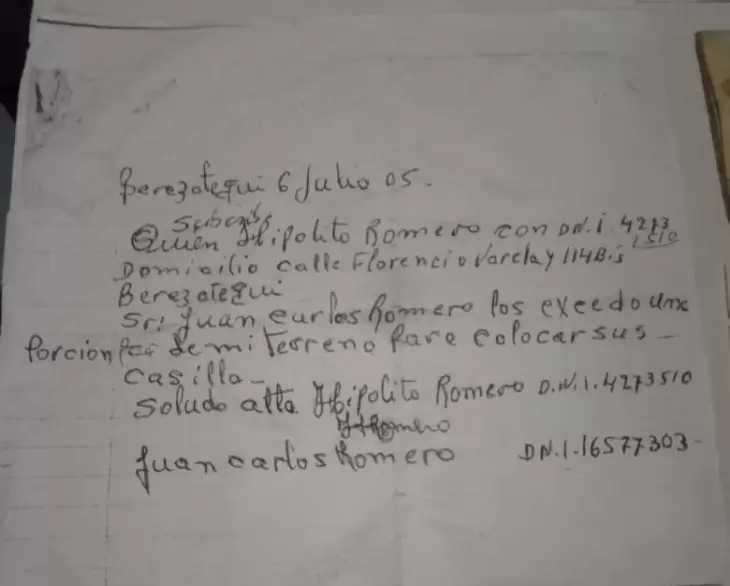 Berezategui 6 Julio 05.
Subcribe
Quien Hipolito Romero con DN.i. 4273
1510
Domicilio calle Florencio Varela y 114Bis
Berezategui
Sr: Juan carlos Romero los exeedo una
Porcion de mi terreno Para colocar sus
casilla
Soludo atta Hipolito Romero D.N.i.4273510
HRomero
Juan carlos Romero DN.i.16577303-